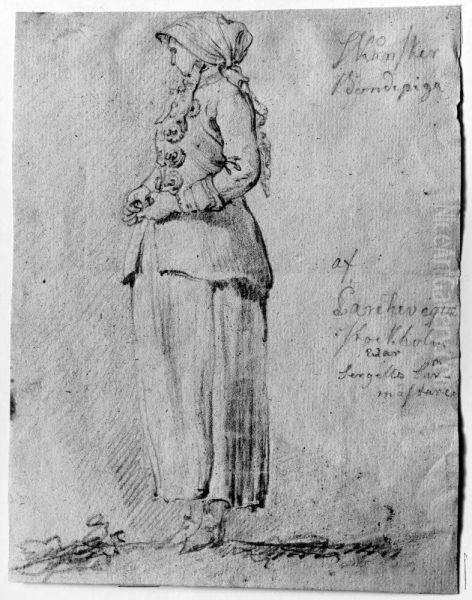 Skånsker
Bondepiga
af
Larchevegue
i Stockholm
war
Sergells lär
mastare